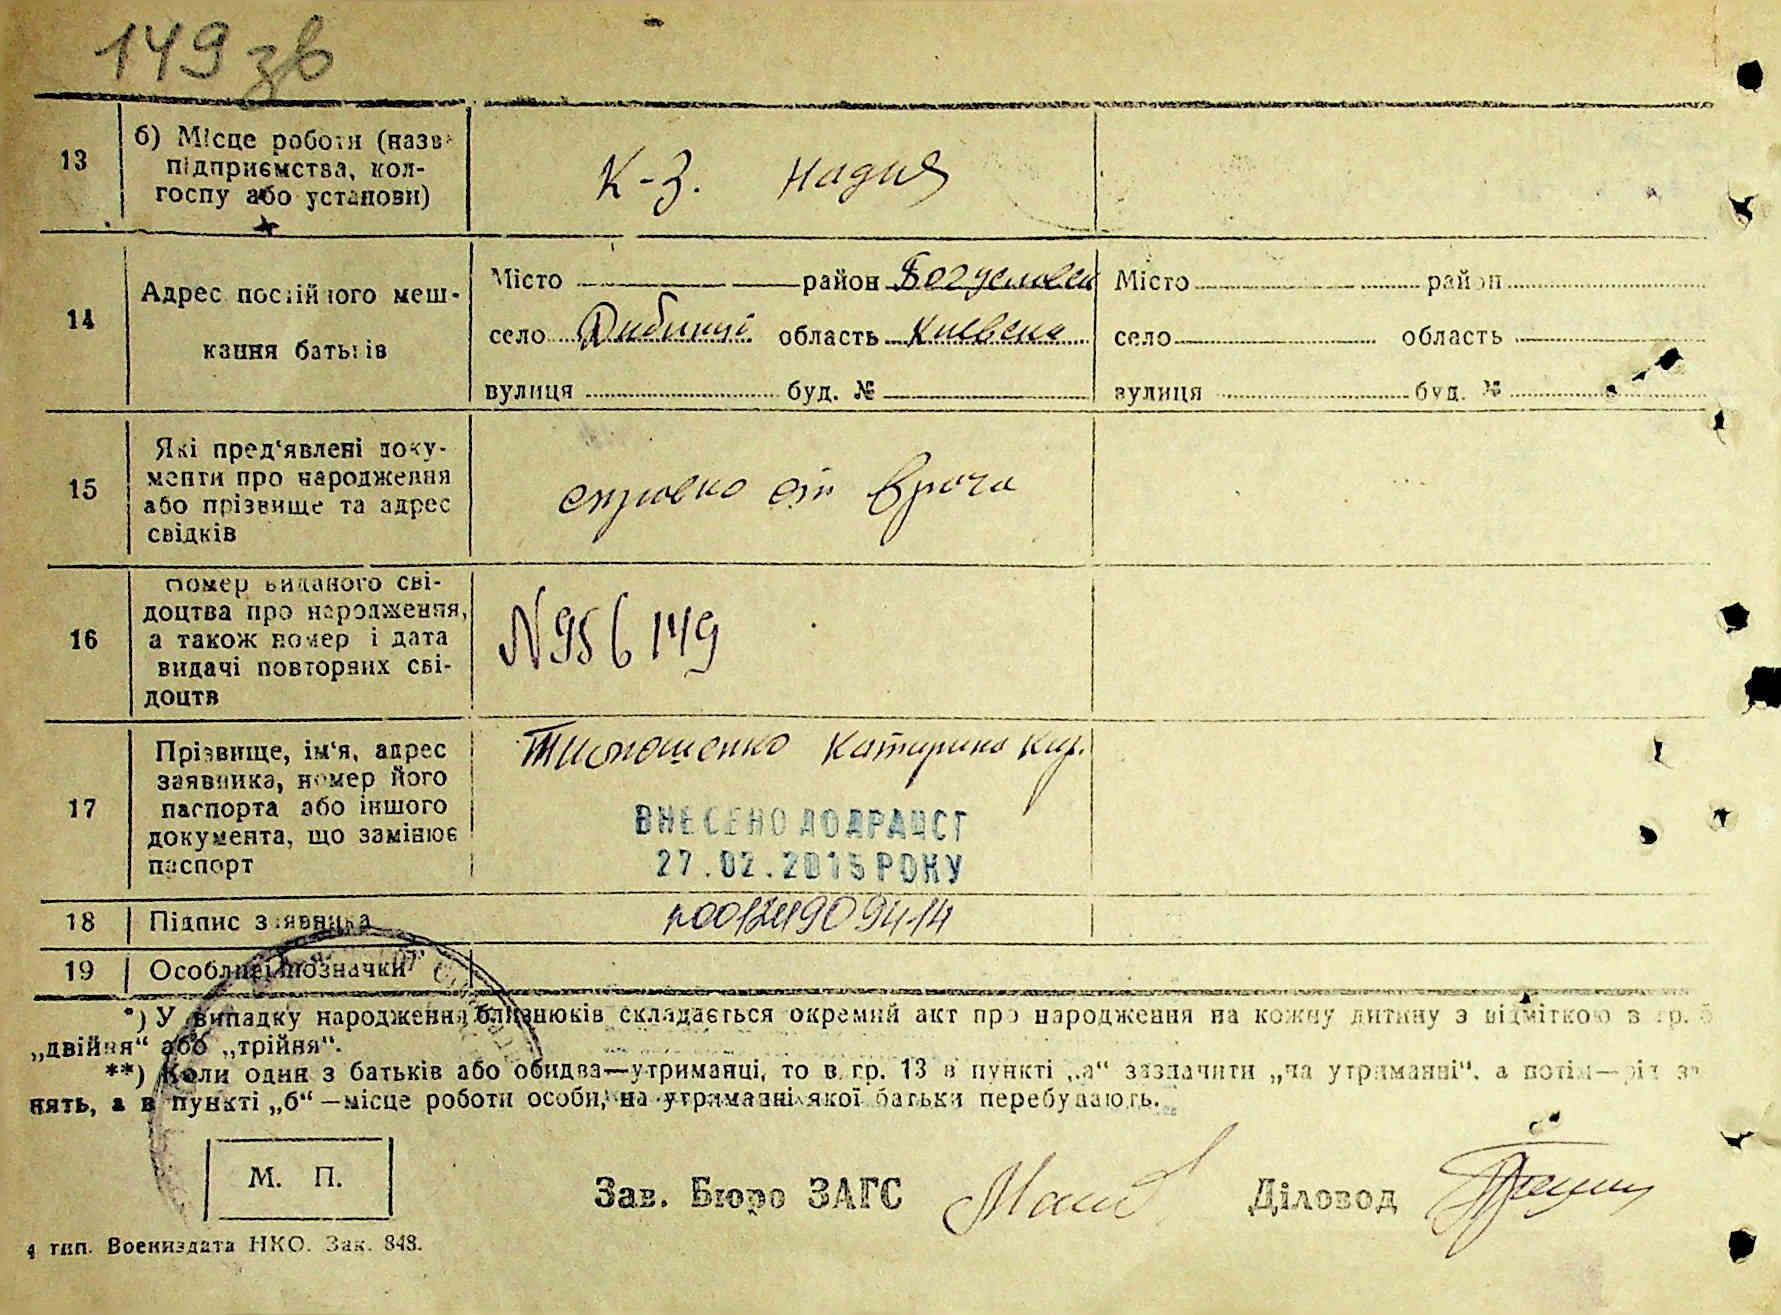 149 зв
13 б) Місце роботи (назва К-з. надия
підприємства, кол-
госпу або установи)
14 Адрес постійного меш-
кання батьків
Місто район Богуславск Місто район
село Дибинці область Киевская село область
вулиця буд. № вулиця буд. №
15 Які пред'явлені доку-
менти про народження
або прізвище та адрес
свідків
справка от врача
16 Номер виданого сві-
доцтва про народження,
а також номер і дата
видачі повторних сві-
доцтв
N 956149
17 Прізвище, ім'я, адрес
заявника, номер його
паспорта або іншого
документа, що замінює
паспорт
Тимошенко Катирина Кир.
ВНЕСЕНО ДО ДРАЦСГ
27.02.2015 РОКУ
18 Підпис заявника 00124909414
19 Особливі позначки
*) У випадку народження близнюків складається окремий акт про народження на кожну дитину з відміткою в гр. 5
„двійня“ або „трійня“.
**) Коли один з батьків або обидва—утриманці, то в гр. 13 в пункті „а“ зазначити „на утриманні“, а потім—рід за-
нять, а в пункті „б“—місце роботи особи, на утриманні якої батьки перебувають.
М. П.
Зав. Бюро ЗАГС Діловод
4 тип. Воениздата НКО. Зак. 848.